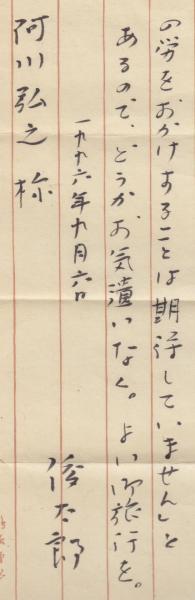 の労をおかけすることは期待していません」と
あるので、どうかお気遣いなく。よい御旅行を。
一九九六年九月六日
俊太郎
阿川弘之様